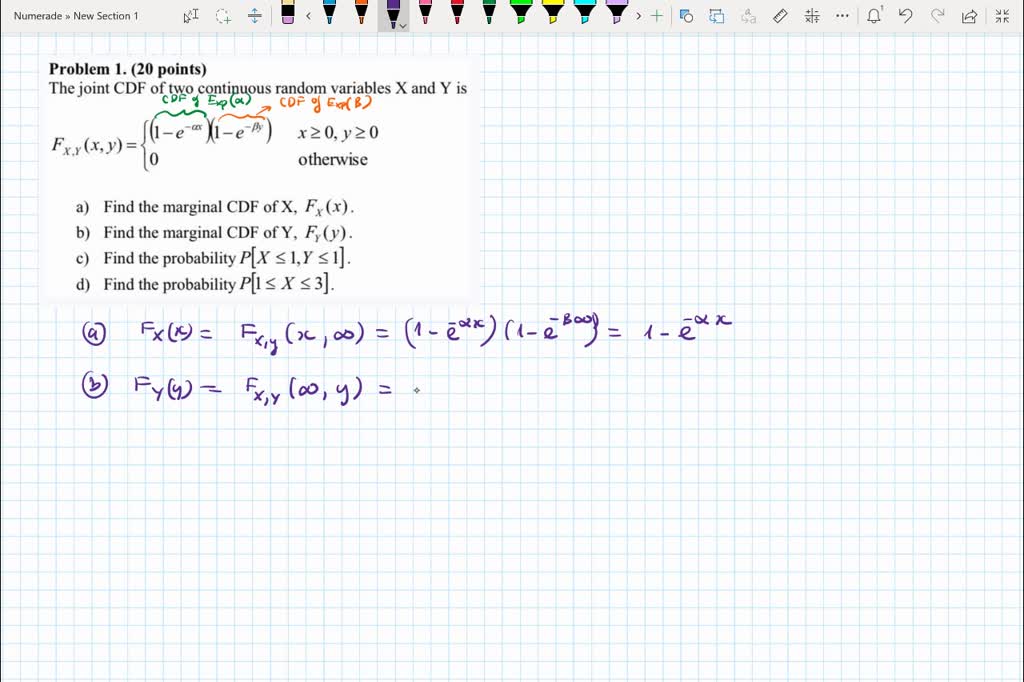 Numerade » New Section 1
Problem 1. (20 points)
The joint CDF of two continuous random variables X and Y is
CDF of Exp(α) → CDF of Exp(β)
F_{X,Y}(x, y) = { (1 − e^{−αx})(1 − e^{−βy})   x ≥ 0, y ≥ 0
0   otherwise
a) Find the marginal CDF of X, F_X(x).
b) Find the marginal CDF of Y, F_Y(y).
c) Find the probability P[X ≤ 1, Y ≤ 1].
d) Find the probability P[1 ≤ X ≤ 3].
(a) F_X(x) = F_{x,y}(x, ∞) = (1 − e^{−αx})(1 − e^{−β∞}) = 1 − e^{−αx}
(b) F_Y(y) = F_{X,Y}(∞, y) =